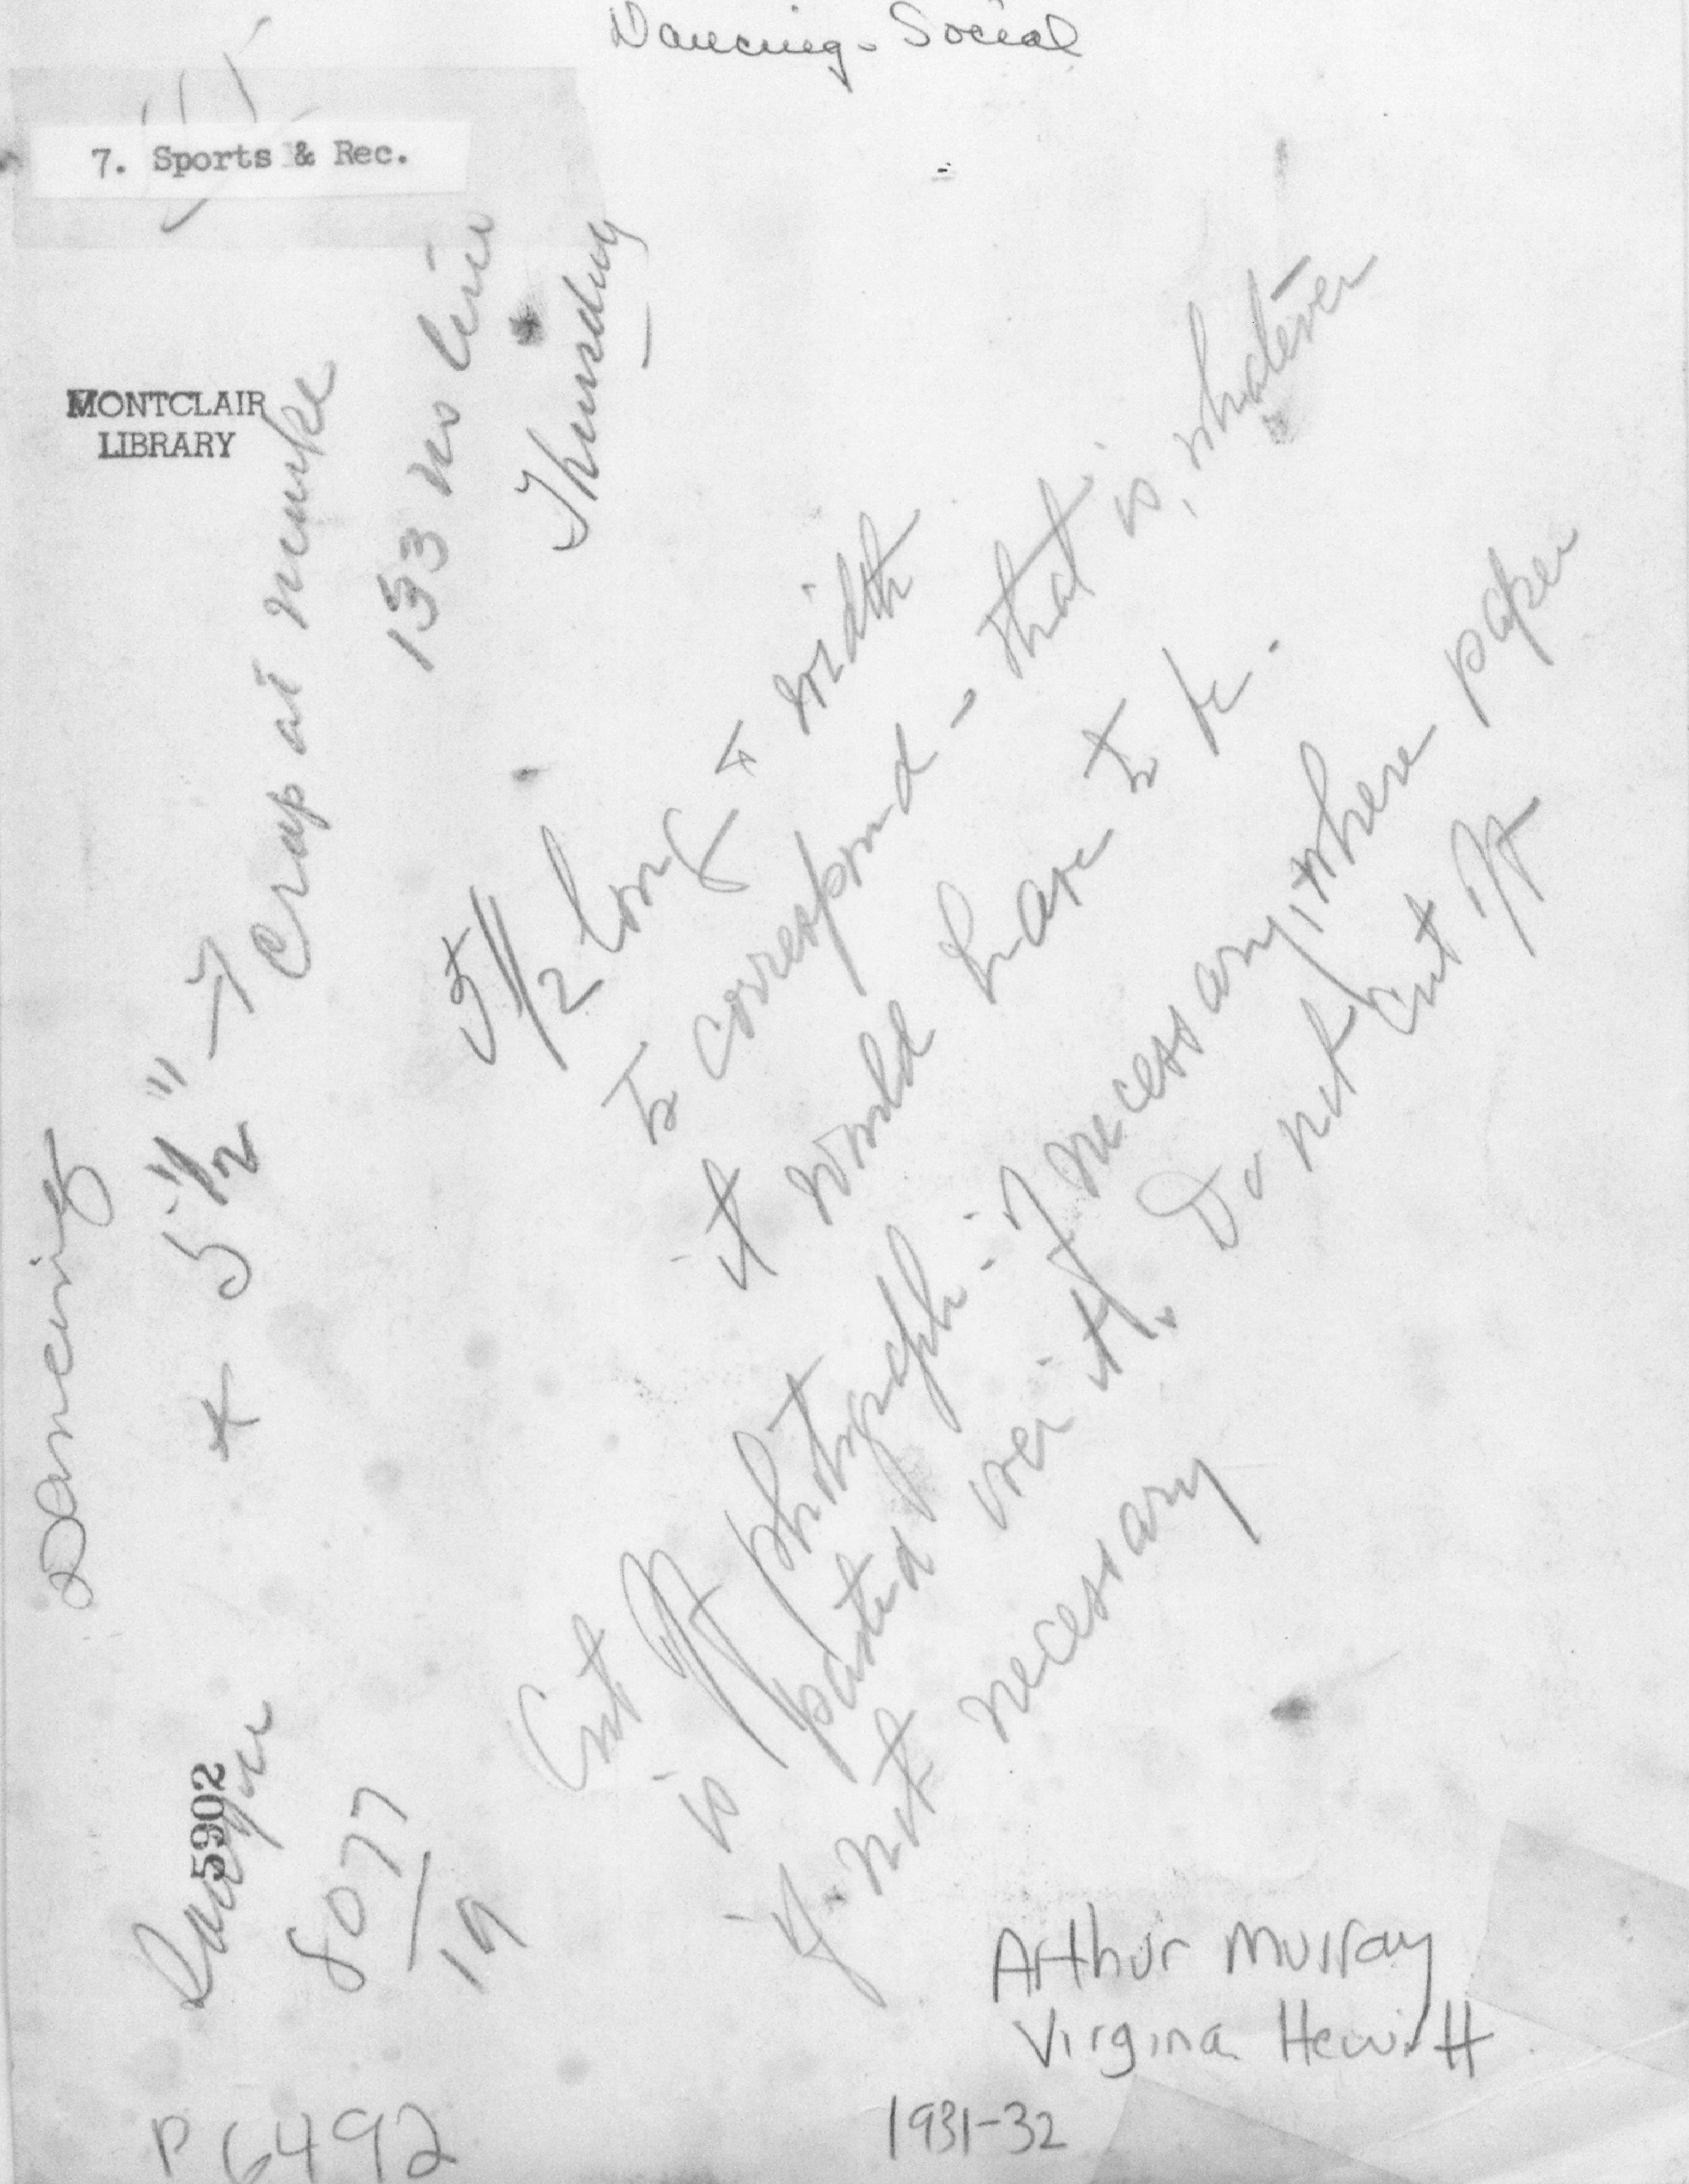 Dancing - Social
7. Sports & Rec.
MONTCLAIR
LIBRARY
Crop at
153 no line
Thursday
5 1/2"
Dancing
5 1/2 long & width
to correspond - that is, whatever
it would have to be.
Cut off photograph - if necessary, where paper
is pasted over it. Do not cut off
if not necessary
5902
8077
19
Arthur Murray
Virgina Hewitt
1931-32
P 6492